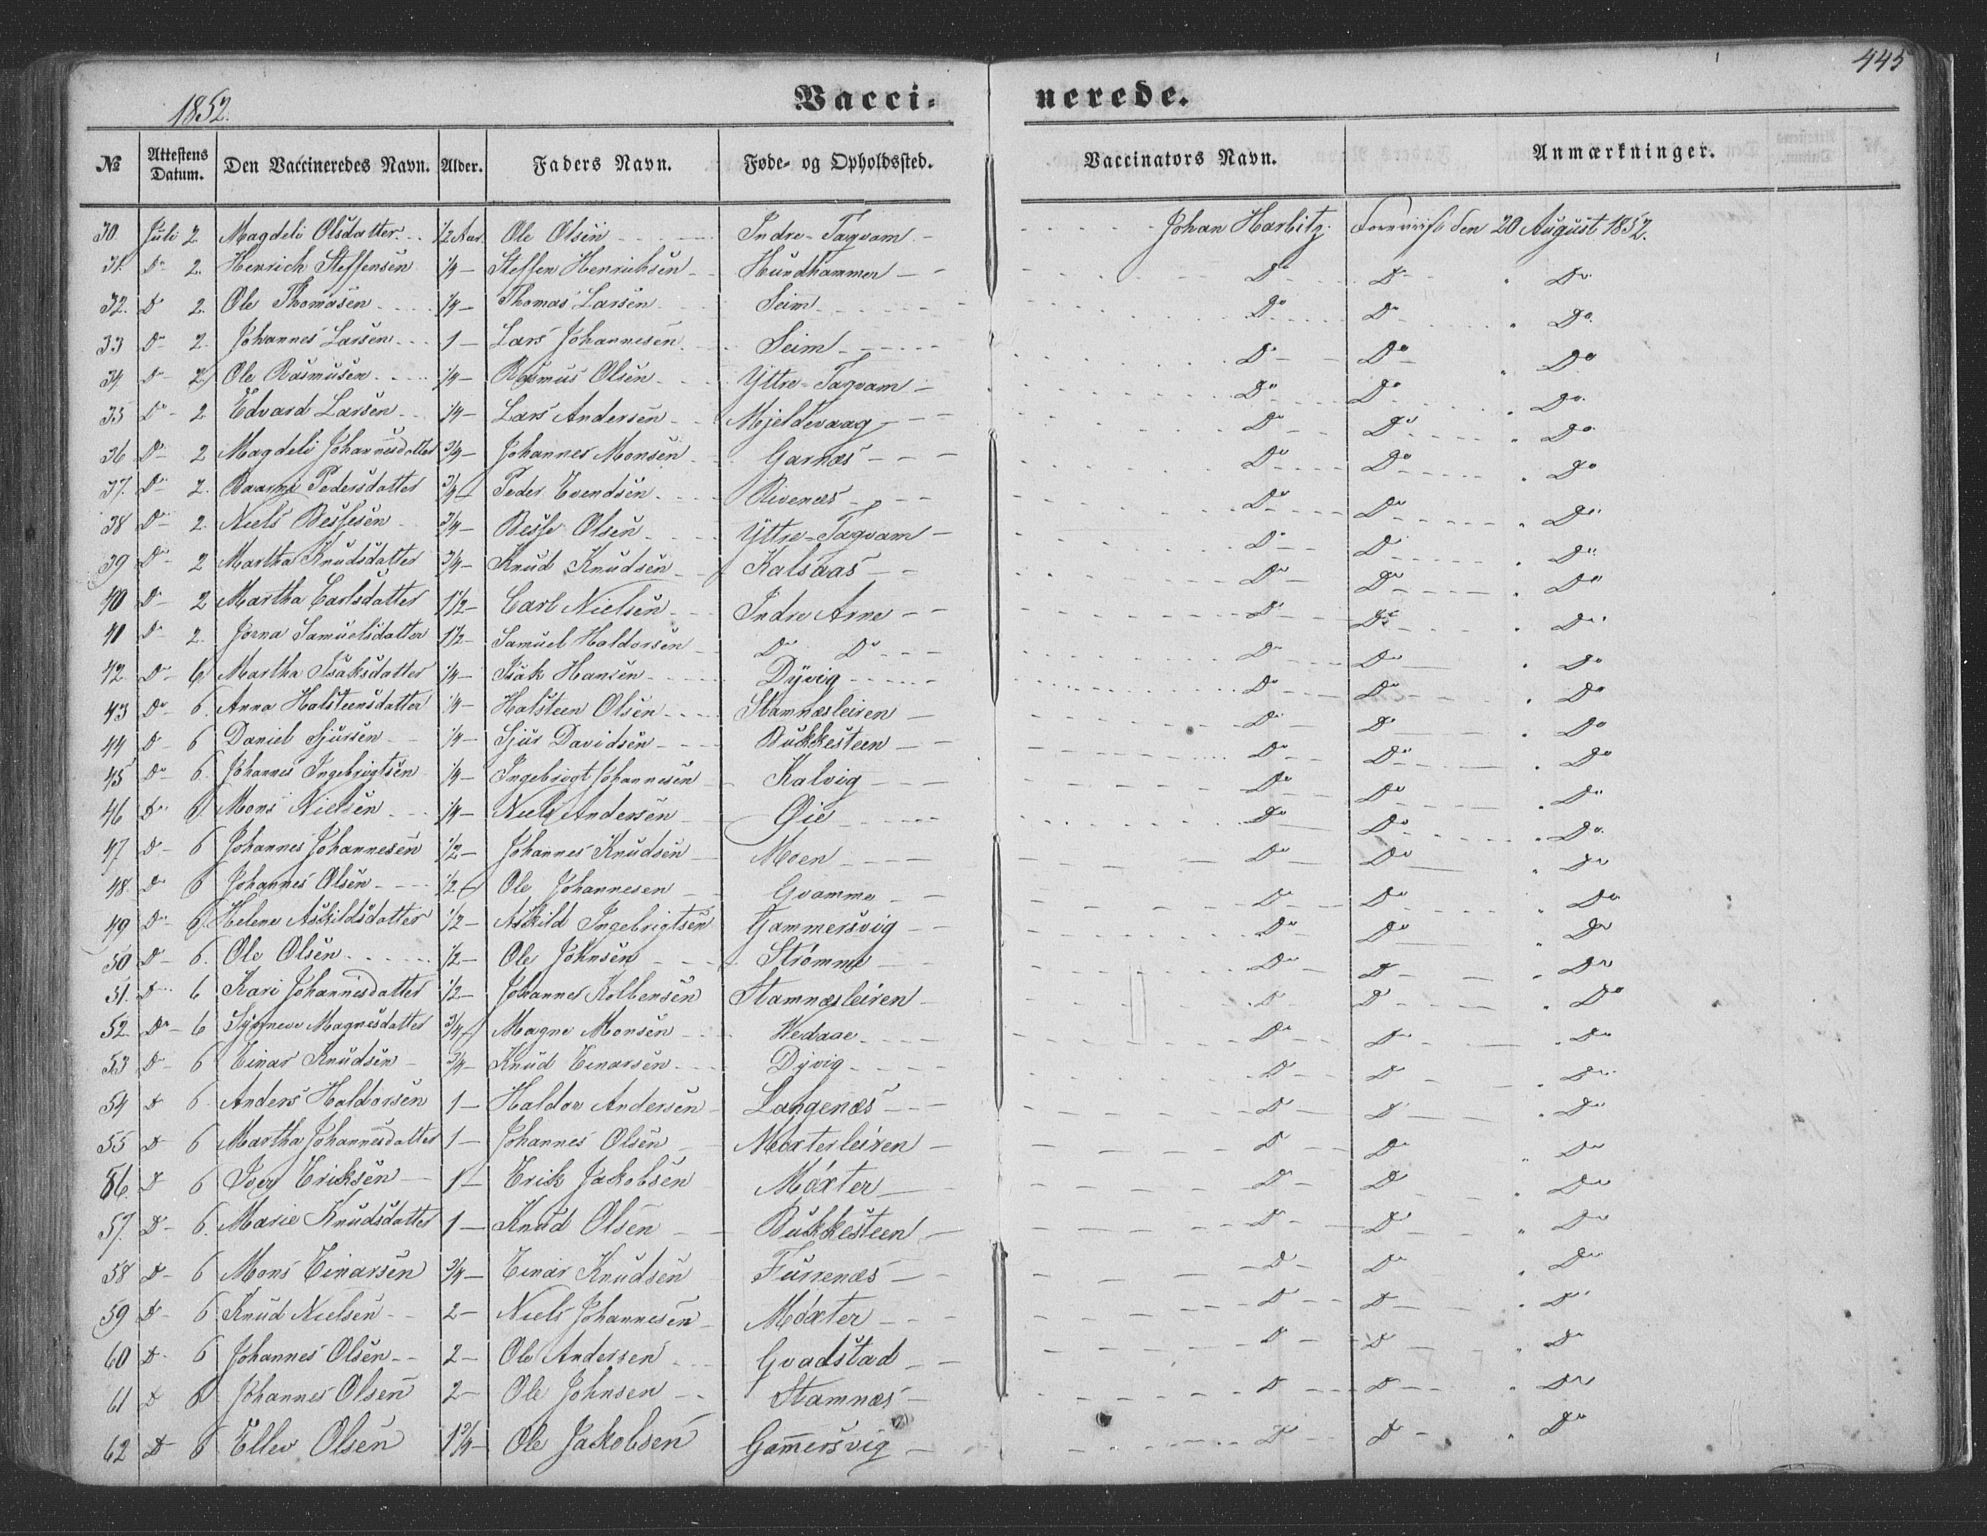 445
1852.
Vacci= nerede.
№ Attestens Datum. Den Vaccineredes Navn. Alder. Faders Navn. Føde- og Opholdssted. Vaccinators Navn. Anmærkninger.
30 Juli 2 Magdeli Olsdatter 1/2 Aar Ole Olsen Indre-Tagvam Johan Harbitz 20 August 1852.
31. Do 2. Henrich Steffensen 1/4 Steffen Henriksen Hundhammer Do Do Do
32. Do 2. Ole Thomasen 1/4 Thomas Larsen Seim Do Do Do
33 Do 2. Johannes Larsen 1 Lars Johannesen Seim Do Do Do
34 Do 2 Ole Rasmusen 1/4 Rasmus Olsen Yttre-Tagvam Do Do Do
35 Do 2 Edvard Larsen 1/4 Lars Andersen Mjeldevaag Do Do Do
36 Do 2 Magdeli Johannesdatter 3/4 Johannes Monsen Garnæs Do Do Do
37. Do 2. Pedersdatter 3/4 Peder Evendsen Rivenæs Do Do Do
38 Do 2. Niels Bessesen 3/4 Besse Olsen Yttre-Tagvam Do Do Do
39 Do 2 Martha Knudsdatter 3/4 Knud Knudsen Kalsaas Do Do Do
40 Do 2 Martha Carlsdatter 1 1/2 Carl Nielsen Indre Arne Do Do Do
41 Do 2. Jorna Samuelsdatter 1 1/2 Samuel Haldorsen Do Do Do Do Do
42 Do 6 Martha Isaksdatter 1/4 Isak Hansen Dyvig Do Do Do
43 Do 6. Anna Halsteensdatter 1/4 Halsteen Olsen Stamnæsleiren Do Do Do
44 Do 6 Daniel Sjursen 1/4 Sjur Davidsen Bukkesteen Do Do Do
45 Do 6. Johannes Ingebrigtsen 1/4 Ingebrigt Johannesen Kalvig Do Do Do
46 Do 6 Mons Nielsen 1/4 Niels Andersen Øie Do Do Do
47 Do 6 Johannes Johannesen 1/2 Johannes Knudsen Moen Do Do Do
48. Do 6 Johannes Olsen 1/2 Ole Johannesen Gvamme Do Do Do
49 Do 6. Helene Askildsdatter 1/2 Askild Ingebrigtsen Gammersvig Do Do Do
50 Do 6. Ole Olsen 1/2 Ole Johnsen Strømme Do Do Do
51. Do 6 Kari Johannesdatter 1/2 Johannes Kolbensen Stamnæsleiren Do Do Do
52. Do 6 Synneve Magnesdatter 3/4 Magne Monsen Hedaae Do Do Do
53 Do 6 Einar Knudsen 3/4 Knud Einarsen Dyvig Do Do Do
54 Do 6 Anders Haldorsen 1 Haldor Andersen Langenæs Do Do Do
55 Do 6 Martha Johannesdatter 1 Johannes Olsen Møxterleiren Do Do Do
56. Do 6 Iver Eriksen 1 Erik Jakobsen Møxter Do Do Do
57. Do 6. Marie Knudsdatter 1 Knud Olsen Bukkesteen Do Do Do
58 Do 6 Mons Einarsen 3/4 Einar Knudsen Furrenæs Do Do Do
59 Do 6 Knud Nielsen 2 Niels Johannesen Møxter Do Do Do
60 Do 6 Johannes Olsen 2 Ole Andersen Gvadstad Do Do Do
61 Do 6 Johannes Olsen 2 Ole Johnsen Stamnæs Do Do Do
62 Do 6 Ellev Olsen 1 3/4 Ole Jakobsen Gamersvig Do Do Do